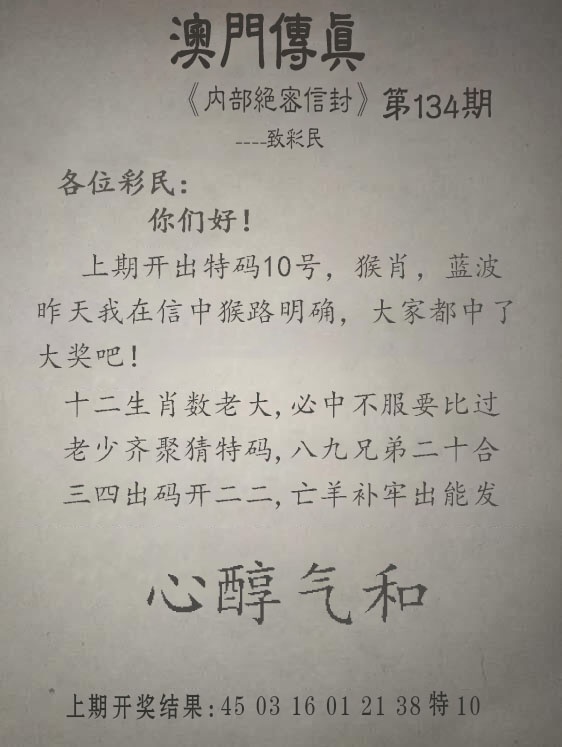 澳門傳眞
《内部絕密信封》第134期
----致彩民
各位彩民：
你们好！
上期开出特码10号，猴肖，蓝波
昨天我在信中猴路明确，大家都中了
大奖吧！
十二生肖数老大,必中不服要比过
老少齐聚猜特码,八九兄弟二十合
三四出码开二二,亡羊补牢出能发
心醇气和
上期开奖结果:45 03 16 01 21 38 特10